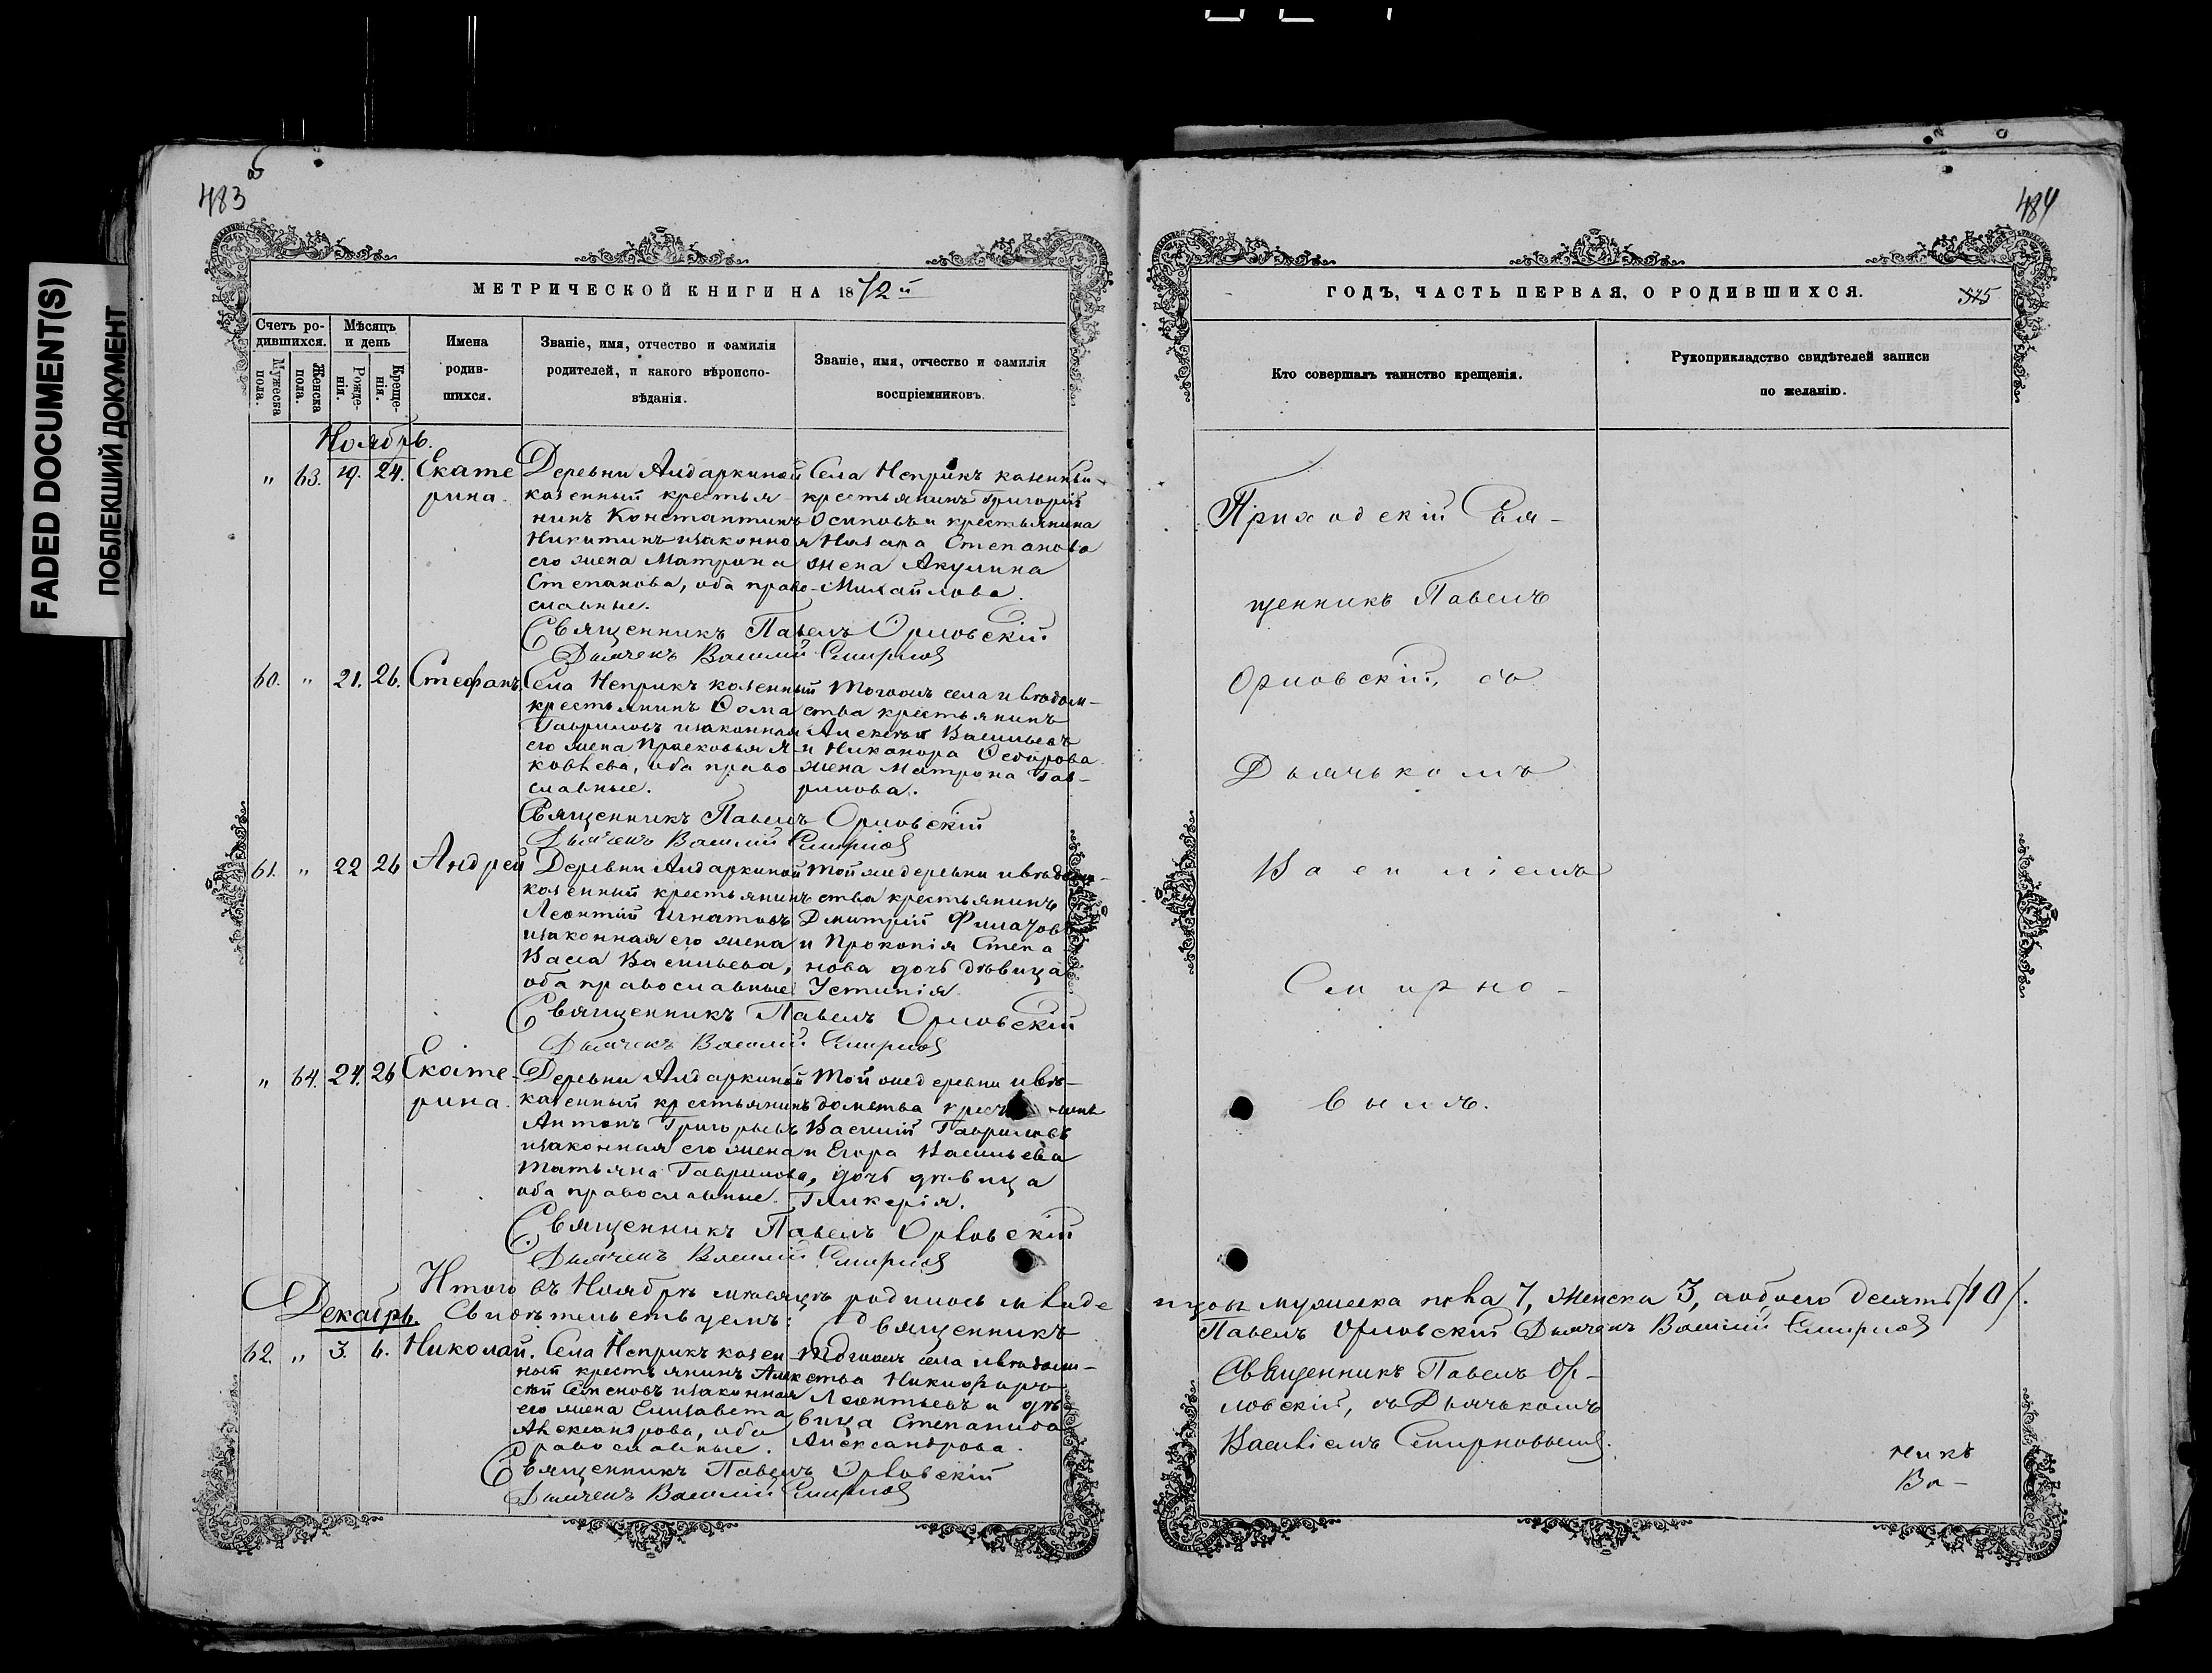 FADED DOCUMENT(S)
ПОБЛЕКШИЙ ДОКУМЕНТ
483
МЕТРИЧЕСКОЙ КНИГИ НА 1872й
Счетъ ро-
дившихся.
Мужеска
пола.
Женска
пола.
Мѣсяцъ
и день
Рожде-
нія.
Креще-
нія.
Имена
родив-
шихся.
Званіе, имя, отчество и фамилія
родителей, и какого вѣроиспо-
вѣданія.
Званіе, имя, отчество и фамилія
воспріемниковъ.
Ноябрь.
" 63. 19. 24. Екате
рина.
Деревни Алдаркиной
казенный крестья-
нинъ Константинъ
Никитинъ и законная
его жена Матрона
Степанова, оба право-
славные.
Села Неприкъ казенный
крестьянинъ Григорій
Осиповъ и крестьянина
Назара Степанова
жена Акулина
Михайлова.
Священникъ Павелъ Орловскій
Дьячекъ Василій Смирновъ
60. " 21. 26. Стефанъ
Села Неприкъ казенный
крестьянинъ Ѳома
Гавриловъ и законная
его жена Прасковья Я-
ковлева, оба право-
славные.
Тогоже села и вѣдом-
ства крестьянинъ
Алексѣй Васильевъ
и Никанора Ѳедорова
жена Матрона Гав-
рилова.
Священникъ Павелъ Орловскій
Дьячекъ Василій Смирновъ
61. " 22 26 Андрей
Деревни Алдаркиной
казенный крестьянинъ
Леонтій Игнатовъ
и законная его жена
Васса Васильева,
оба православные
Той же деревни и вѣдом-
ства крестьянинъ
Дмитрій Филатовъ
и Прокопія Степа
нова дочь дѣвица
Устинія
Священникъ Павелъ Орловскій
Дьячекъ Василій Смирновъ
" 64. 24. 26 Екате-
рина.
Деревни Алдаркиной
казенный крестьянинъ
Антонъ Григорьевъ
и законная его жена
Татьяна Гаврилова,
оба православные.
Той же деревни и вѣ-
домства
Василій Гавриловъ
и Егора Васильева
дочь дѣвица
Гликерія.
Священникъ Павелъ Орловскій
Дьячекъ Василій Смирновъ
Итого въ Ноябрѣ мѣсяцѣ родилось
Свидѣтельствуемъ: Священникъ
Декабрь.
62. " 3. 6. Николай.
Села Неприкъ казен-
ный крестьянинъ Алек
сѣй Семеновъ и законная
его жена Елизавета
Александрова, оба
православные.
Тогоже села и вѣдом-
ства Никифоръ
Леонтьевъ и дѣ
вица Степанида
Александрова.
Священникъ Павелъ Орловскій
Дьячекъ Василій Смирновъ
484
ГОДЪ, ЧАСТЬ ПЕРВАЯ, О РОДИВШИХСЯ.
Кто совершалъ таинство крещенія.
Рукоприкладство свидѣтелей записи
по желанію.
Приходскій Свя-
щенникъ Павелъ
Орловскій, съ
Дьячькомъ
Василіемъ
Смирно-
вымъ.
мужеска пола 7, женска 3, а обоего десять /10/.
Павелъ Орловскій Дьячекъ Василій Смирновъ
Священникъ Павелъ Ор-
ловскій, съ Дьячькомъ
Василіемъ Смирновымъ.
никъ
Ва-